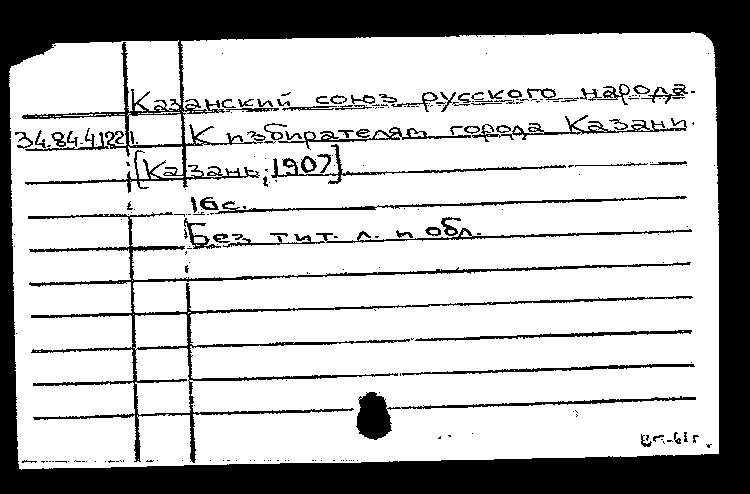 Казанский союз русского народа.
34.84.4122 К избирателям города Казани.
[Казань, 1907].
16 с.
Без тит. л. и обл.